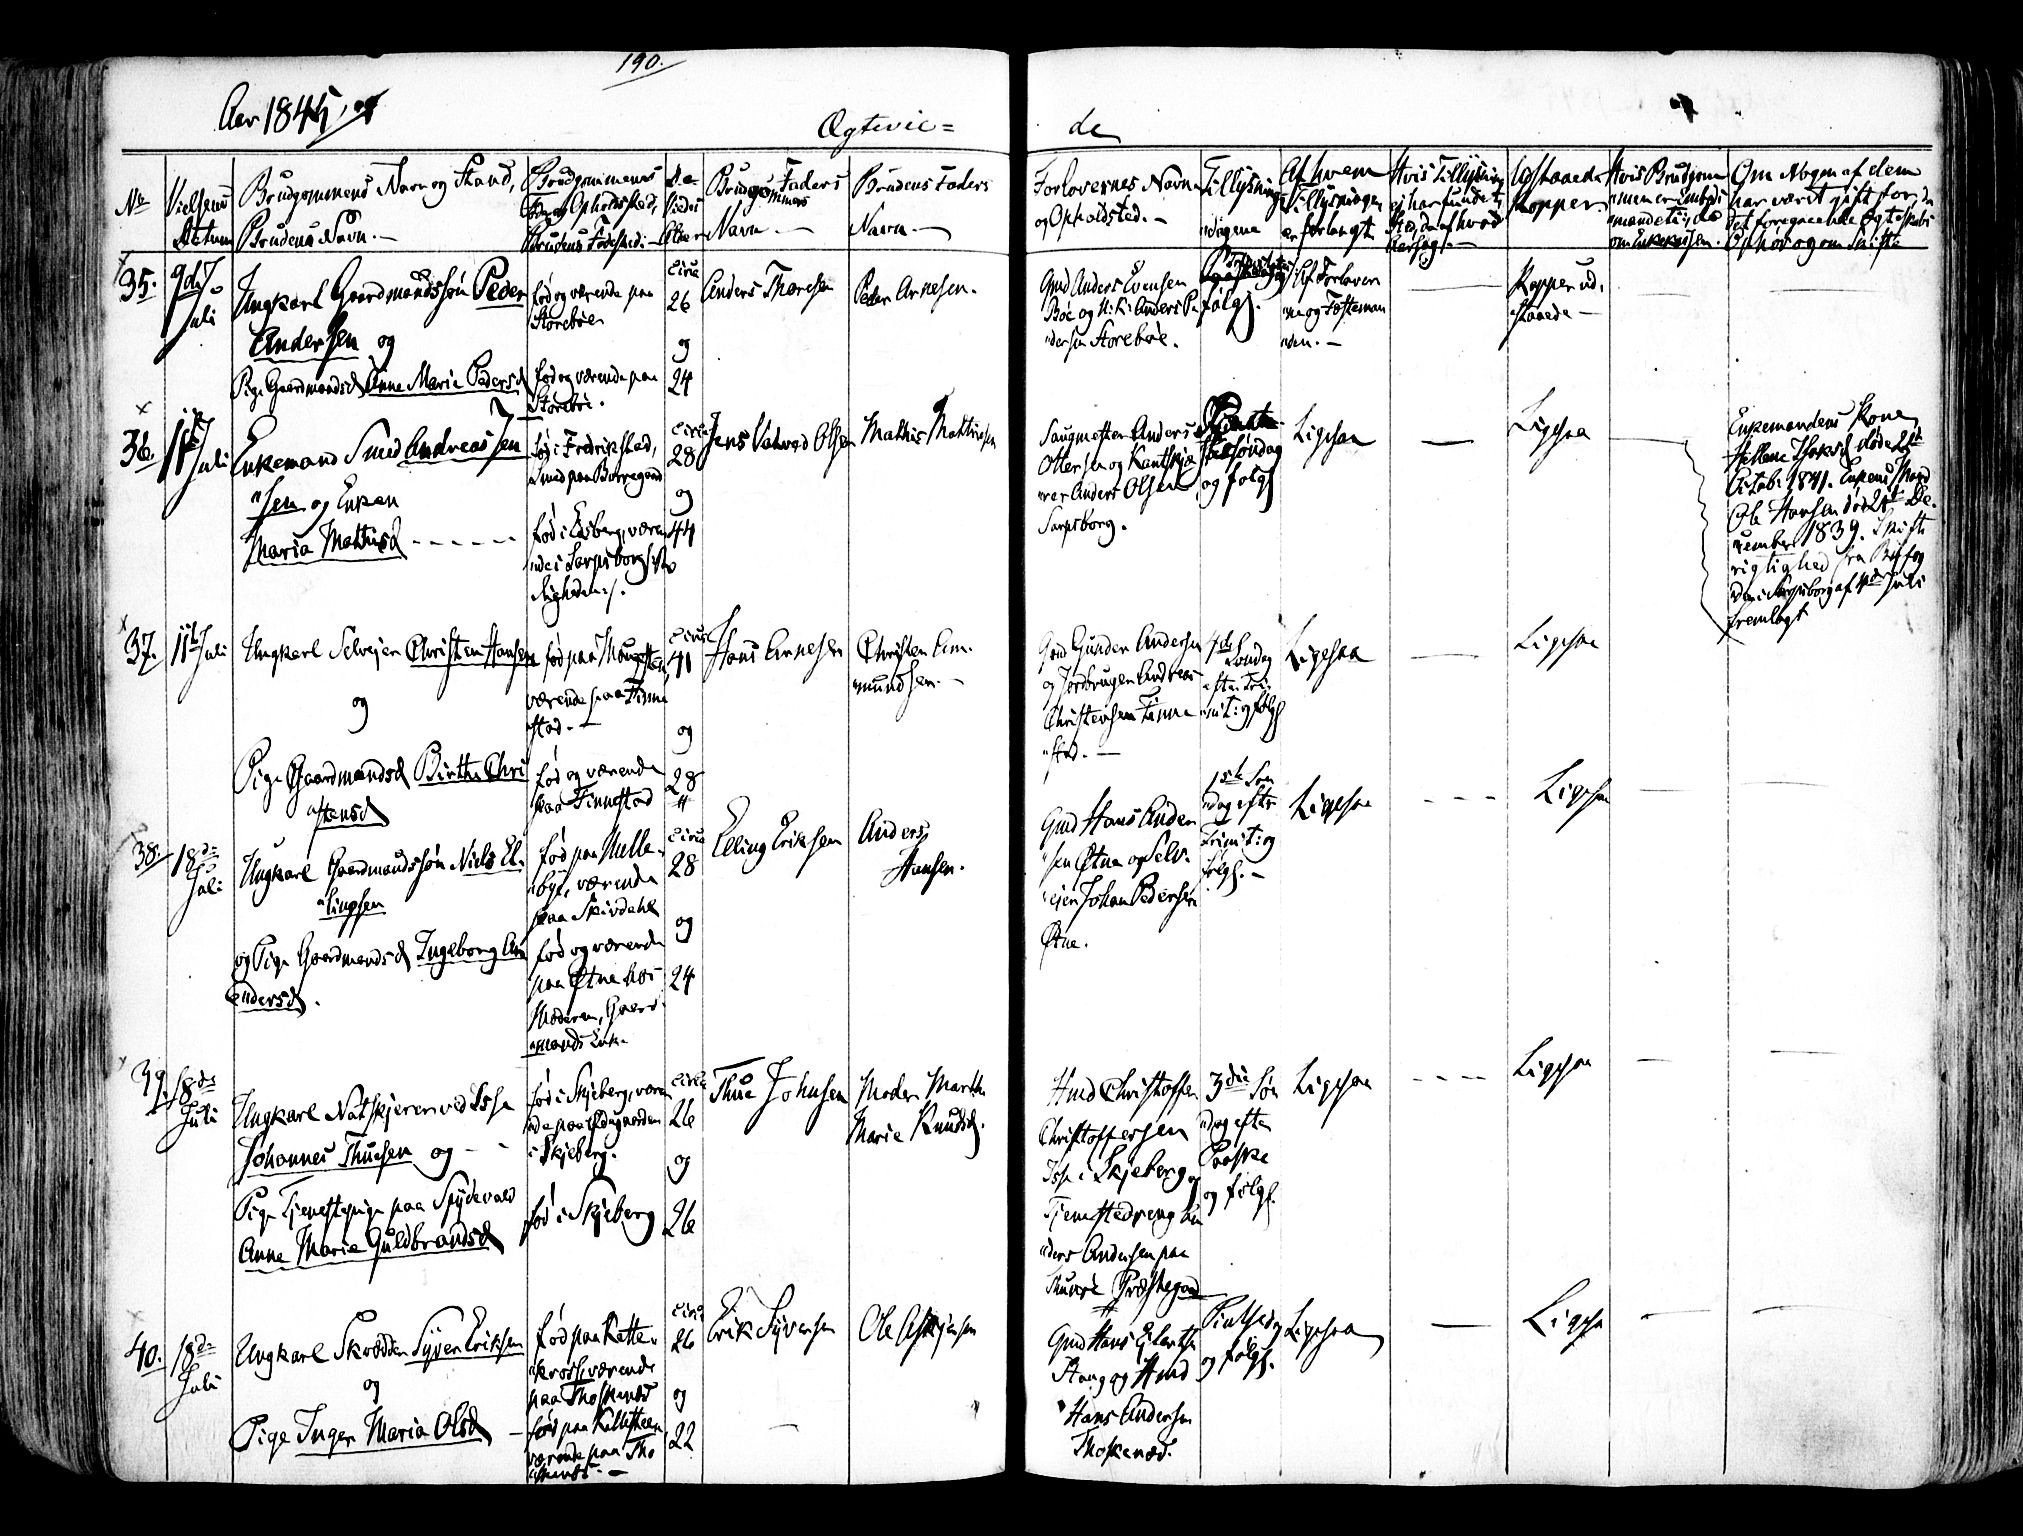 190.
Aar 1845
Ægtevie=
de
No
Vielsens Datum
Brudgommens Navn og Stand,
Brudens Navn.
Brudgommens
Opholdssted,
Brudens Fødested.
De
Viedes
Alder
Brudgommens Faders
Navn
Brudens Faders
Navn.
Forlovernes Navne
og Opholdsted.
Af hvem
Tillysningen
er forlangt
Hvis Tillysning
ei har fundet
Sted, da af hvad
Aarsag.
Kopper
Hvis Brudgom
Om Nogen af dem
har været gift før,
35.
9de
Juli
Ungkarl Gaardmandssøn Peder
Andersen og
Pige Gaardmandsd Anne Marie Pedersd
fød og værende paa
Storebøe
fød og værende paa
Storebøe.
circa
26
og
24
Anders Thoresen
Peder Arnesen.
Gmd Anders Evensen
Bøe og Anders Pe
dersen Storebøe.
følg.
Af Forlover
ne og Festeman
den.
Kopper ud,
staaede
36.
11te Juli
Enkemand Smed Andreas Jen
sen og Enken
Maria Mathisd
fød i Fredrikstad,
Smed paa Borregaard
fød i Eidsberg, væren
de i Sarpsborg
circa
28
og
44
Jens Olsen
Mathis Mathisen
Saugmester Anders
Ottersen og
Anders Olsen
Sarpsborg.
og følg
Ligesaa
Ligesaa
Enkemandens Kone
Hellene døde 21de
Octobr 1841. Enkens Mand
Ole Hansen død 21de De
cember 1839. Skifte
rigtighed fra
i Sarpsborg af Juli
fremlagt
37.
11te Juli
Ungkarl Selveier Christen Hansen
og
Pige Gaardmandsd Birthe Chri
stensd
værende paa Finne
stad.
fød og værende
paa Finnestad
circa
41
og
28
Hans Arnesen
Christen Am
mundsen.
Gmd Gunder Andersen
og Jordbruger Andreas
Christensen Finne
stad.
4de
Søndag
efter Tri
nit: og følg
Ligesaa
Ligesaa
38.
18de
Juli
Ungkarl Gaardmandssøn Niels El
lingsen
og Pige Gaardmandsd Ingeborg An
dersd.
fød paa Melle
bye, værende
paa Skivdahl
fød og værende
paa Øtne hos
Moderen, Gaard
mands Enke
circa
28
og
24
Elling Eriksen
Anders
Hansen.
Gmd Hans Ander
sen Øtne og Selv
eier Johan Pedersen
Øtne.
1ste Søn
dag efter
Trinit: og
følg.
Ligesaa
Ligesaa
39.
18de
Juli
Ungkarl Natskjerer ved Isse
Johannes Thuesen og
Pige Tjenestepige paa Spydevold
Anne Marie Guldbrandsd
fød i Skjeberg, væren
de paa
i Skjeberg.
fød i Skjeberg
circa
26
og
26
Thue Johnsen
Moder Marthe
Marie Knudsd.
Hmd Christoffer
Christoffersen
Isse i Skjeberg og
Tjenestedreng An
ders Andersen paa
Thunøe Præstegaard
3die Søn
dag efter
Paaske
og følg.
Ligesaa
Ligesaa
40.
18de
Juli
Ungkarl Skrædder Syver Eriksen
og
Pige Inger Maria Olsd
fød paa Katte
kross, værende
paa Thoskenæs
fød paa
værende paa Tho
skenæs.
circa
26
og
22
Erik Syversen
Ole Asbjønsen
Gmd Hans
Haug og Hmd
Hans Andersen
Thoskenæs.
Pintsedag
og følg.
Ligesaa
Ligesaa